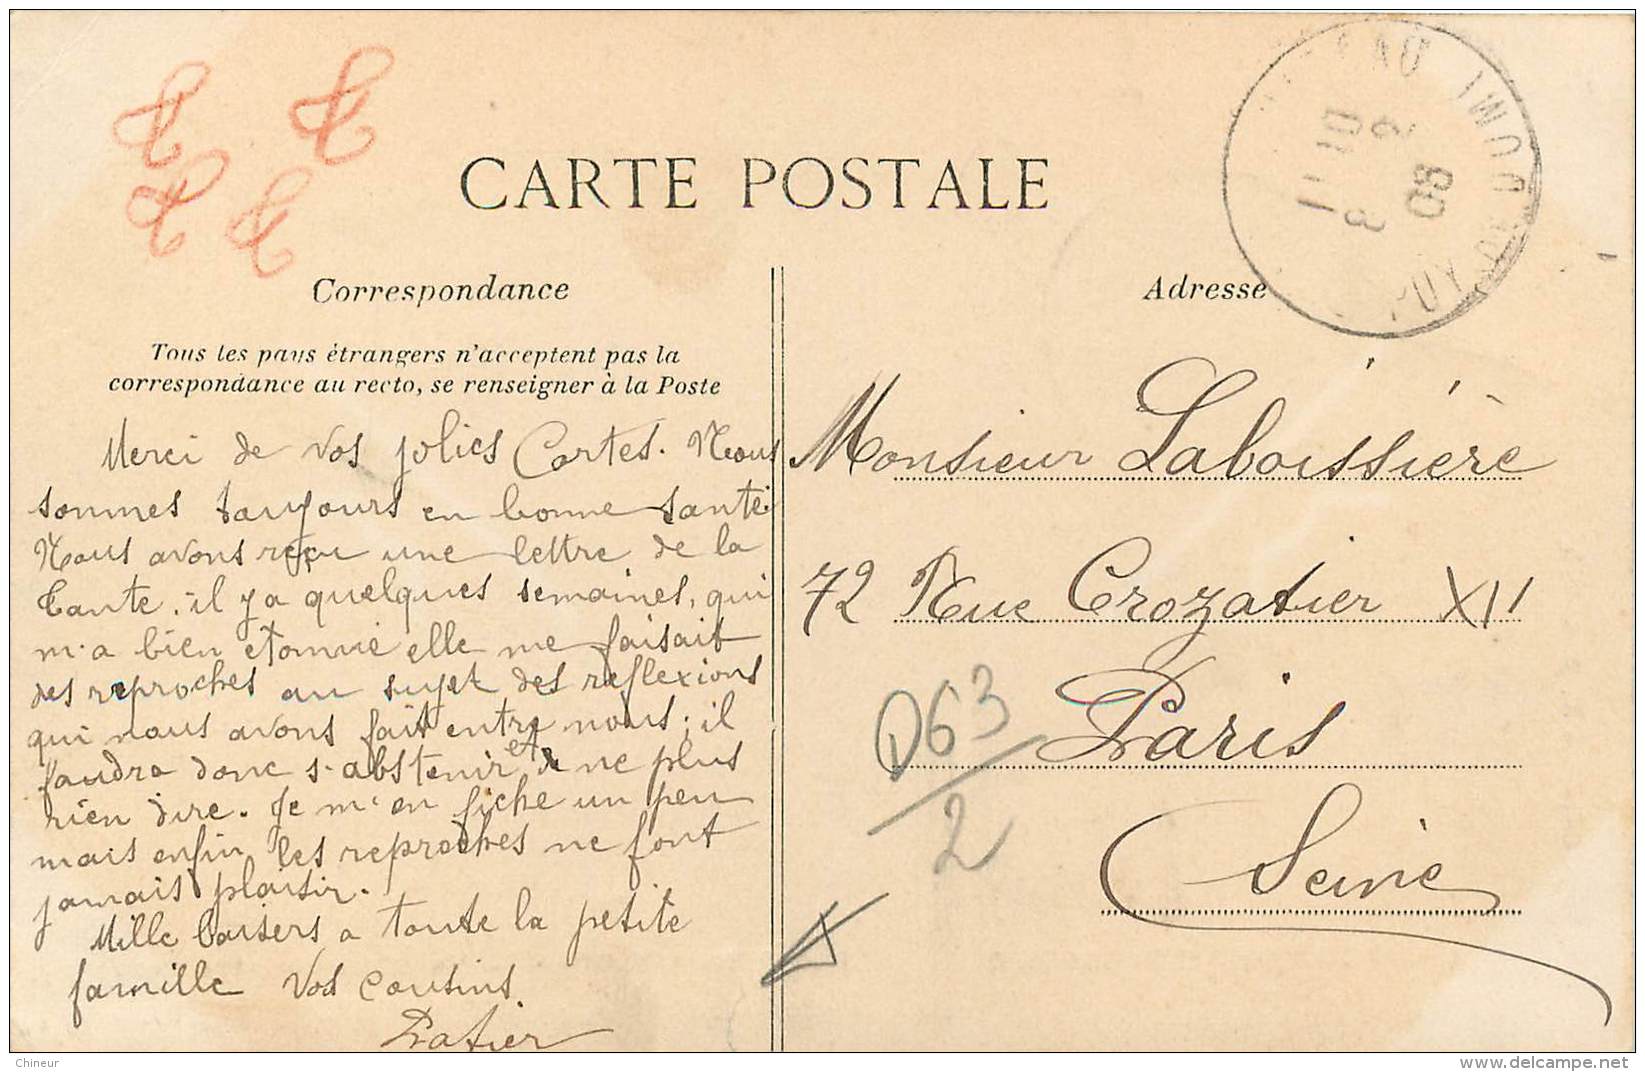 CARTE POSTALE
Correspondance
Tous les pays étrangers n'acceptent pas la
correspondance au recto, se renseigner à la Poste
Merci de vos jolies Cartes. Nous
sommes toujours en bonne santé.
Nous avons reçu une lettre de la
tante, il y a quelques semaines, qui
m'a bien étonné elle me faisait
des reproches au sujet des reflexions
qui nous avons fait entre nous; il
faudra donc s'abstenir et ne plus
rien dire. Je m'en fiche un peu
mais enfin les reproches ne font
jamais plaisir.
Mille baisers a toute la petite
famille Vos cousins.
Ratier
Adresse
Monsieur Laboissière
72 Rue Crozatier XII
Paris
Seine
D63
2
11 10
3 2
08
Chineur
www.delcampe.net